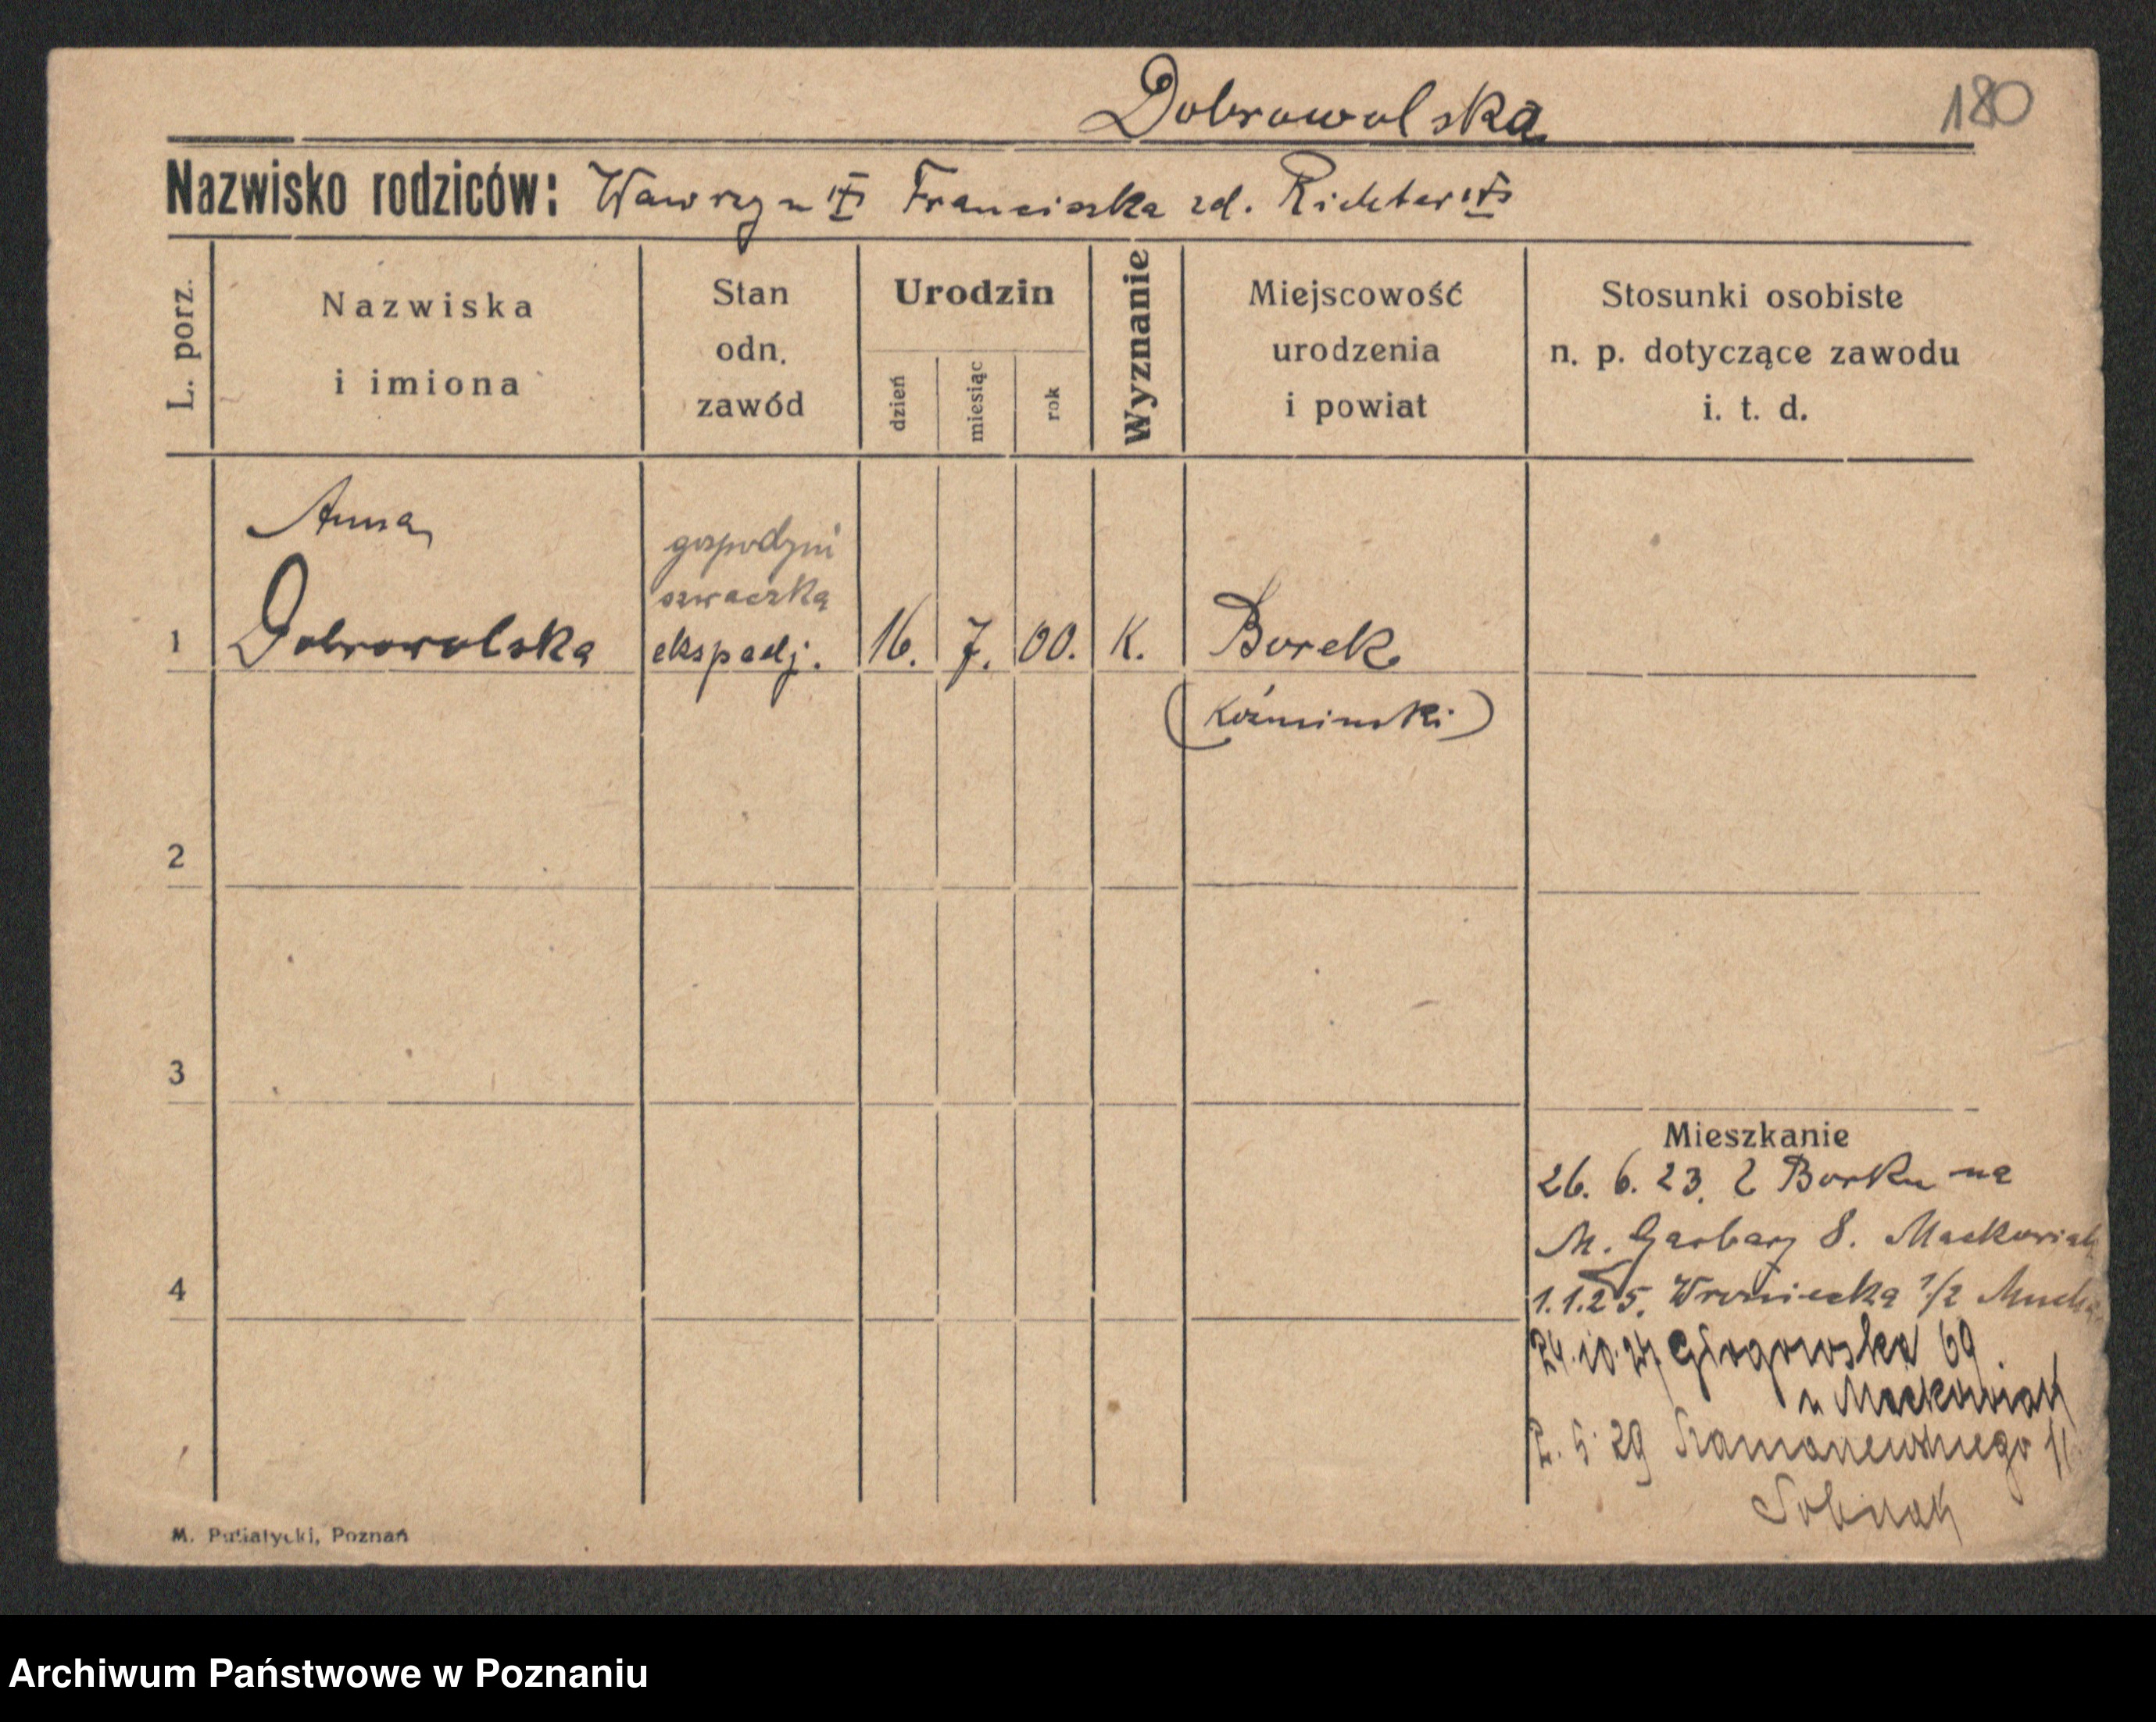 Dobrowolska
180
Nazwisko rodziców: Wawrzyn Franciszka zd. Richter
L. porz.
Nazwiska
i imiona
Stan
odn.
zawód
Urodzin
dzień
miesiąc
rok
Wyznanie
Miejscowość
urodzenia
i powiat
Stosunki osobiste
n. p. dotyczące zawodu
i. t. d.
Anna
gospodyni
szwaczka
1 Dobrowolska ekspedj. 16. 7. 00. K. Borek
(Koźmiński)
2
3
Mieszkanie
26. 6. 23. Z Borku na
M. Garbary 8. Maćkowiak
4
1.1.25. Wroniecka 1/2 Mucha
24.10.27 Głogowska 69
u Maćkowiak
2. 5 29 11
M. Putiatycki, Poznań
Archiwum Państwowe w Poznaniu